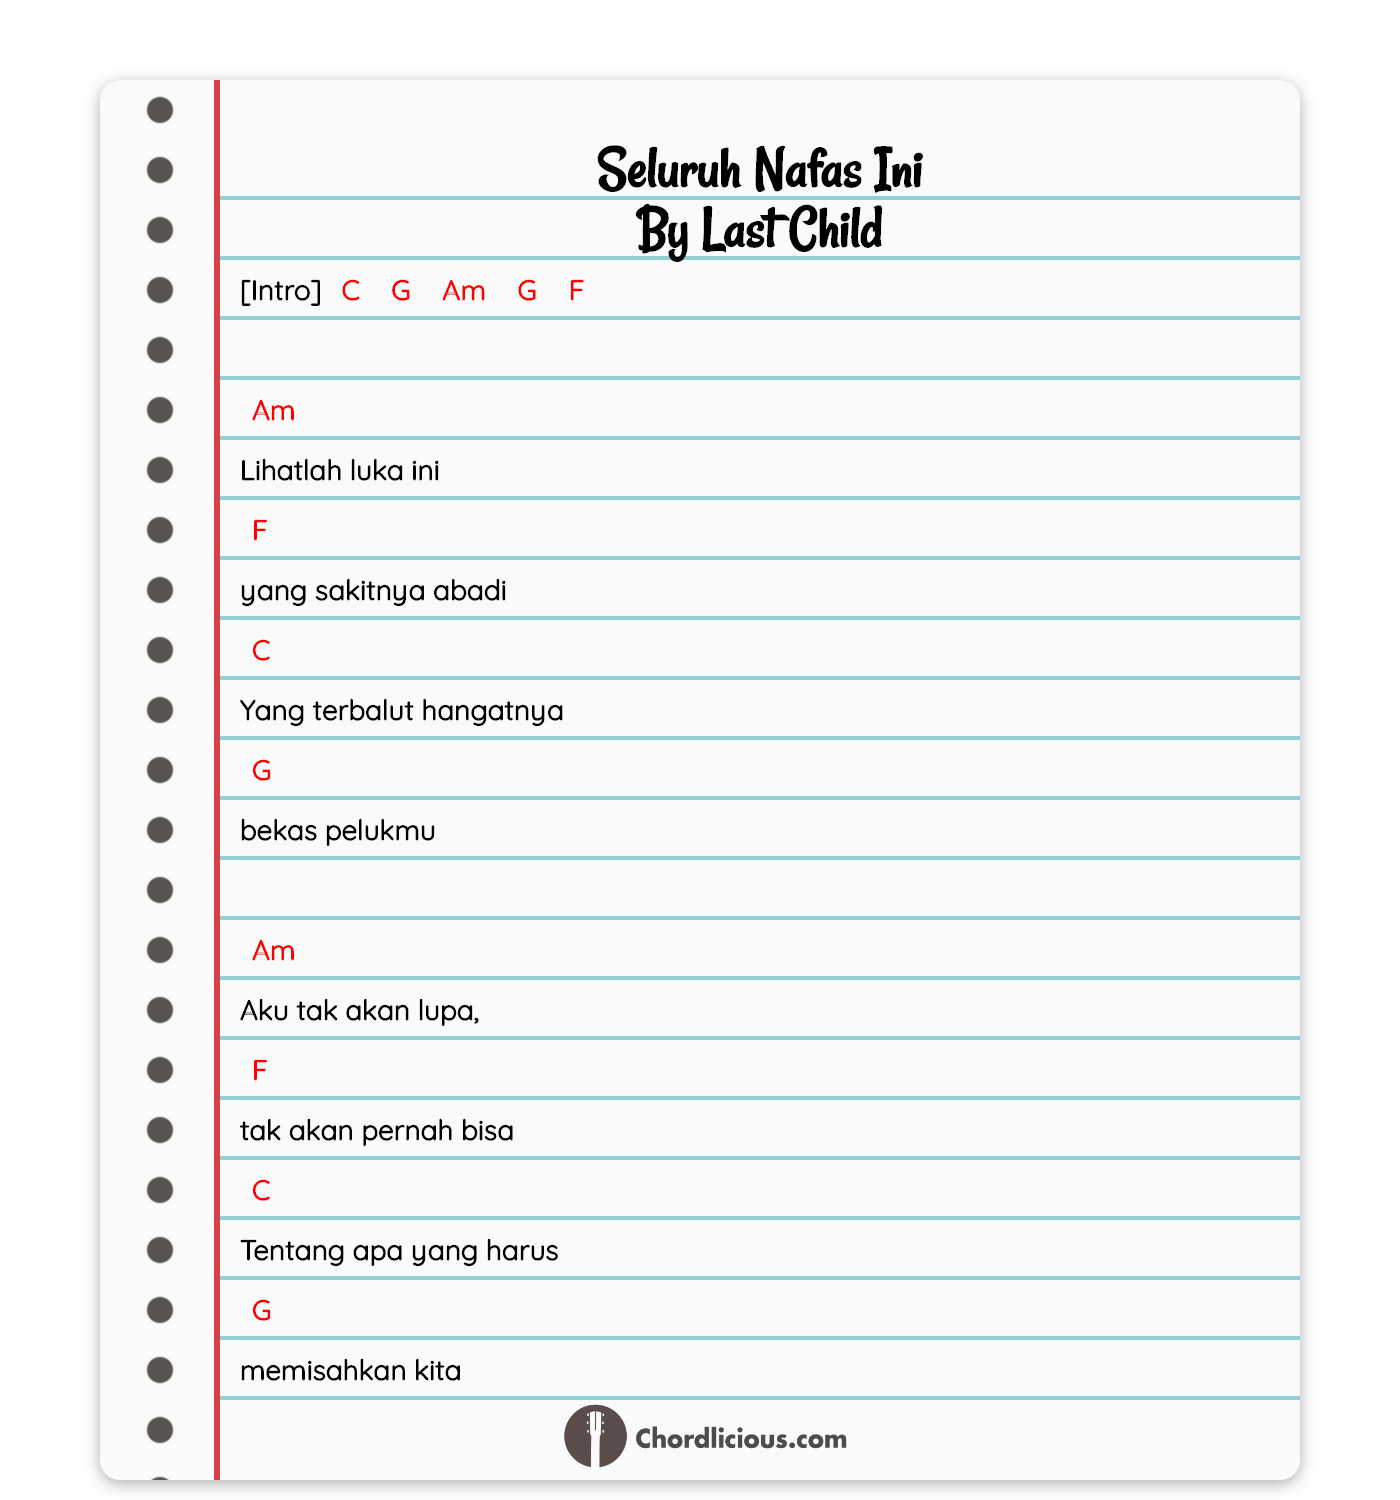 Seluruh Nafas Ini
By Last Child
[Intro] C G Am G F
Am
Lihatlah luka ini
F
yang sakitnya abadi
C
Yang terbalut hangatnya
G
bekas pelukmu
Am
Aku tak akan lupa,
F
tak akan pernah bisa
C
Tentang apa yang harus
G
memisahkan kita
Chordlicious.com